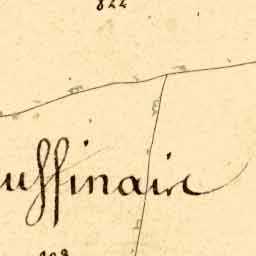 822
uffinaire